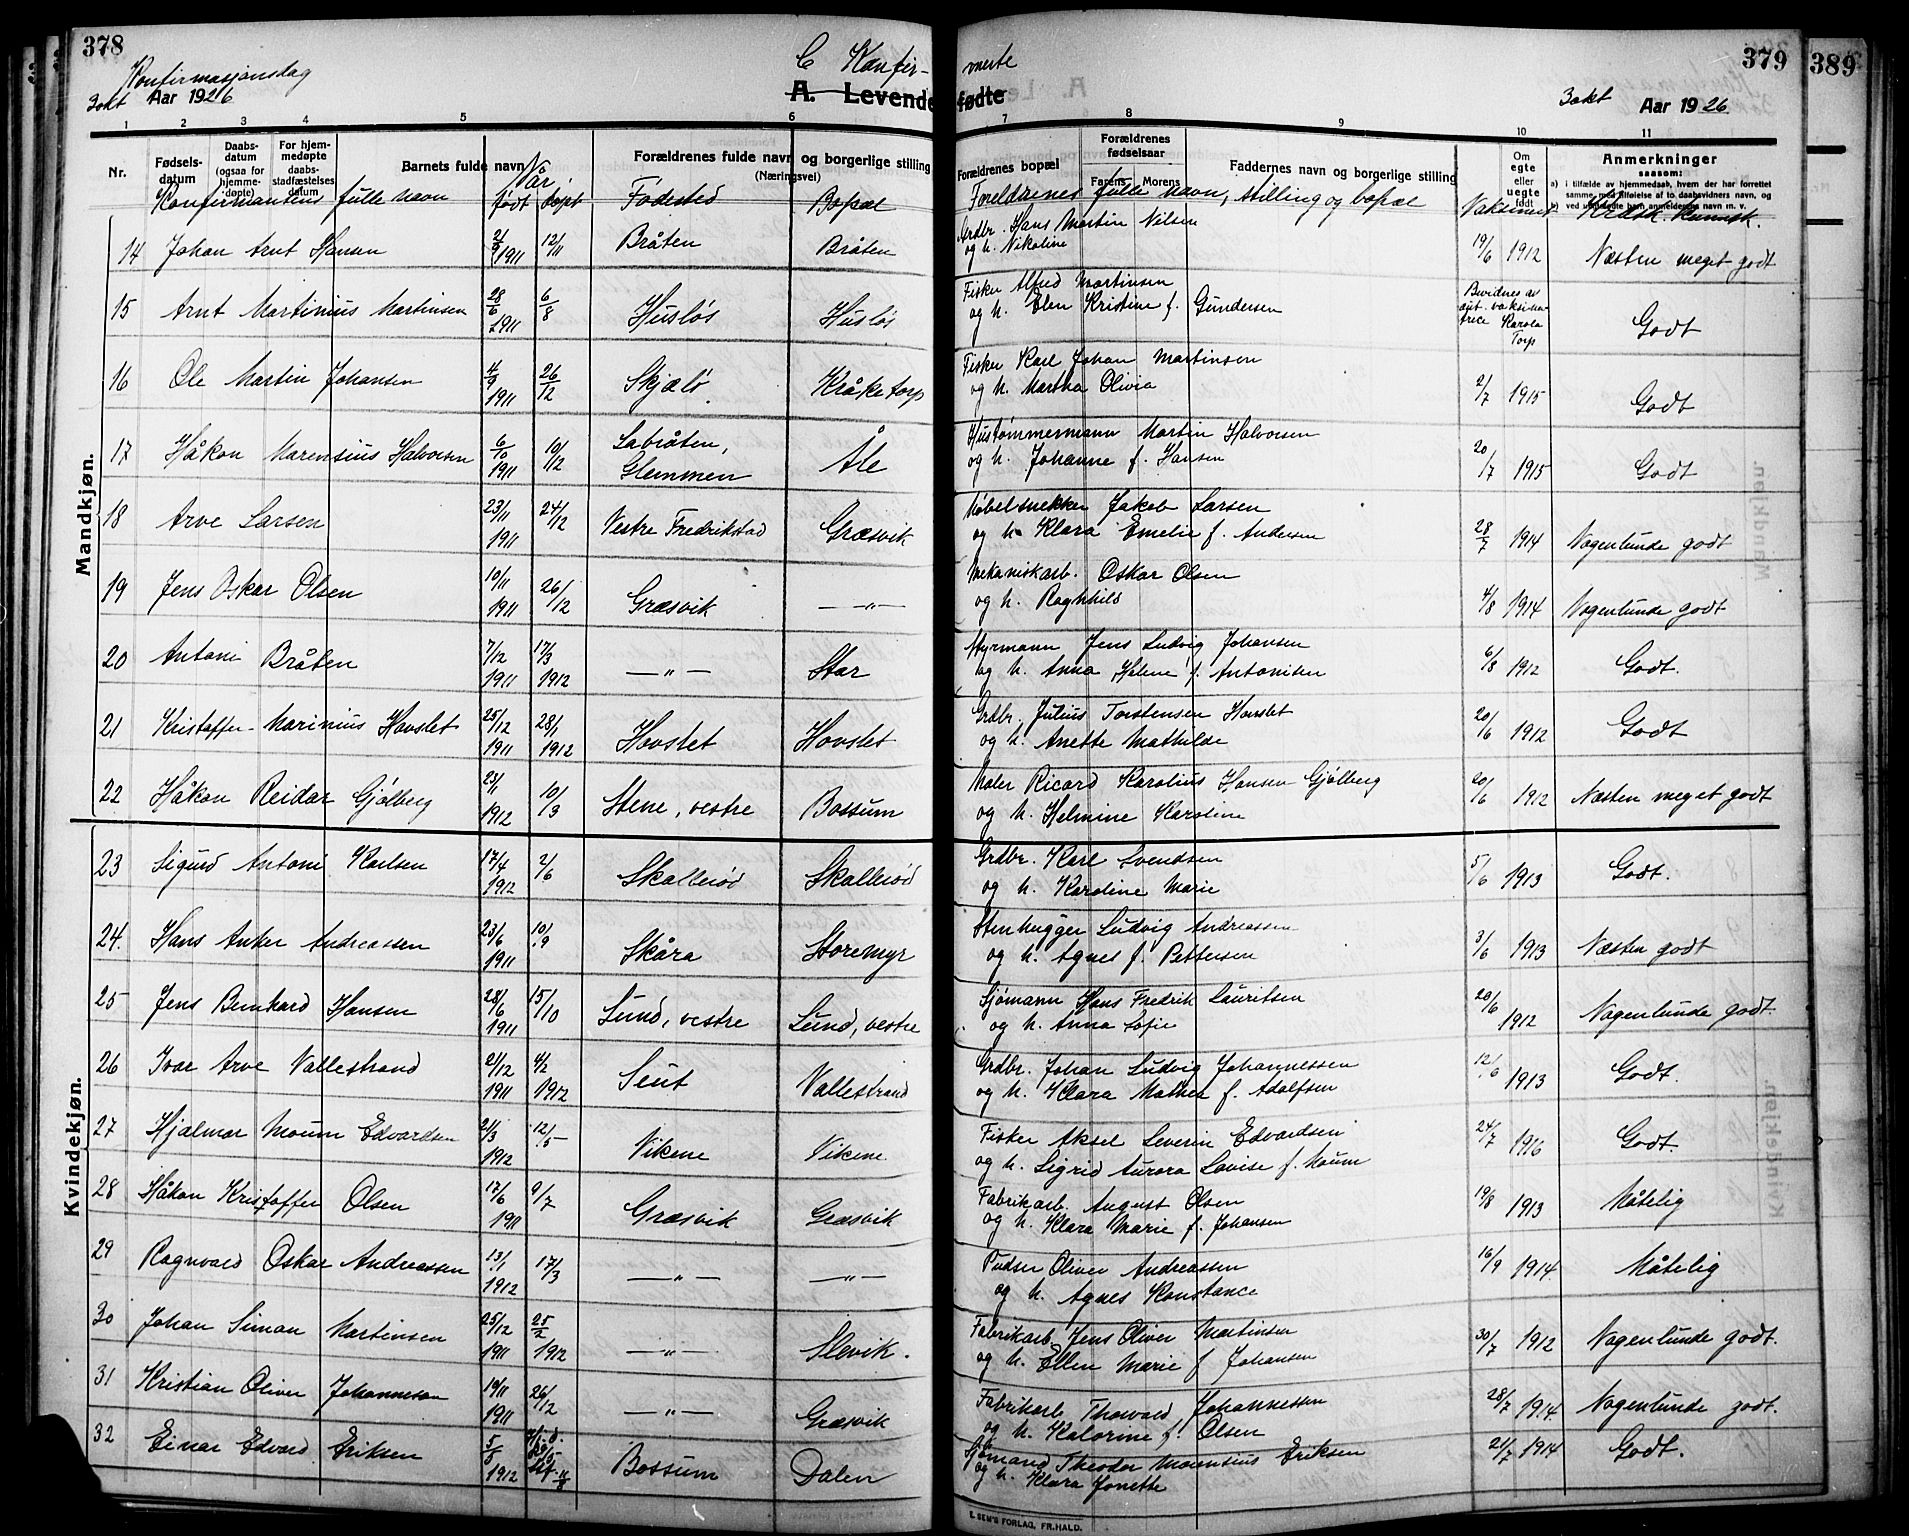 378
C. Konfir-
merte
379
389
Konfirmasjonsdag
3 okt Aar 1926
A. Levende fødte
3 okt Aar 1926
1 2 3 4 5 6 7 8 9 10 11
Nr. Fødsels-datum Daabs-datum (ogsaa for hjemme-døpte) For hjem-medøpte daabs-stadfæstelses datum Barnets fulde navn Forældrenes fulde navn og borgerlige stilling (Næringsvei) Forældrenes bopæl Forældrenes fødselsaar Farens Morens Faddernes navn og borgerlige stilling Om egte eller uegte født Anmerkninger saasom:
a) i tilfælde av hjemmedaab, hvem der har forrettet samme, med tilføielse af to daabsvidners navn, og
b) ved uegtefødte barn anmelderens navn m. v.
Konfirmantens fulle navn Når født døpt Fødested Bopæl Foreldrenes fulle navn, stilling og bopæl Vaksinert Kristk. kunnsk.
Mandkjøn.
14 Johan Arnt Hansen 2/9 1911 12/11 Bråten Bråten Grdbr. Hans Martin Nilsen
og h. Nikoline 19/6 1912 Næsten meget godt
15 Arnt Martinius Martinsen 28/6 1911 6/8 Husløs Husløs Fisker Alfred Martinsen
og h. Elen Kristine f. Gundersen Bevidnes av aut. vaksinatrice Karola Torp Godt
16 Ole Martin Johansen 4/9 1911 26/12 Skjælø Kråketorp Fisker Karl Johan Martinsen
og h. Martha Olivia 2/7 1915 Godt
17 Håkon Marensius Halvorsen 6/10 1911 10/12 Labråten, Glemmen Åle Hustømmermann Martin Halvorsen
og h. Johanne f. Hansen 20/7 1915 Godt
18 Arve Larsen 23/11 1911 24/12 Vestre Fredrikstad Græsvik Møbelsnekker Jakob Larsen
og h. Klara Emelie f. Andersen 28/7 1914 Nogenlunde godt
19 Jens Oskar Olsen 10/11 1911 26/12 Græsvik —"— Mekaniskarb. Oskar Olsen
og h. Ragnhild 4/8 1914 Nogenlunde godt
20 Antoni Bråten 7/12 1911 17/3 1912 —"— Stor Styrmann Jens Ludvig Johansen
og h. Anna Helene f. Antonisen 6/8 1912 Godt.
21 Kristoffer Marinius Hovslet 25/12 1911 28/1 1912 Hovslet Hovslet Grdbr. Julius Torstensen Hovslet
og h. Anette Mathilde 20/6 1912 Godt
22 Håkon Reidar Gjølberg 23/1 1912 10/3 Stene, vestre Bossum Maler Ricard Karolius Hansen Gjølberg
og h. Helmine Karoline 20/6 1912 Næsten meget godt
Kvindekjøn.
23 Sigurd Antoni Karlsen 17/4 1912 2/6 Skallerød Skallerød Grdbr. Karl Svendsen
og h. Karoline Marie 5/6 1913 Godt.
24. Hans Anker Andreassen 23/6 1911 10/9 Skåra Storemyr Stenhugger Ludvig Andreassen
og h. Agnes f. Pettersen 3/6 1913 Næsten godt
25 Jens Bernhard Hansen 28/6 1911 15/10 Lund, vestre Lund, vestre Sjømann Hans Fredrik Lauritsen
og h. Anna Sofie 20/6 1912 Nogenlunde godt
26 Ivar Arve Vallestrand 21/12 1911 4/2 1912 Seut Vallestrand Grdbr. Johan Ludvig Johannessen
og h. Klara Mathea f. Adolfsen 12/6 1913 Godt.
27 Hjalmar Moum Edvardsen 21/3 1912 12/5 Vikene Vikene Fisker Aksel Severin Edvardsen
og h. Sigrid Aurora Lovise f. Moum 24/7 1916 Godt.
28 Håkon Kristoffer Olsen 17/6 1911 9/7 Græsvik Græsvik Fabrikarb. August Olsen
og h. Klara Marie f. Johansen 19/8 1913 Måtelig
29 Ragnvald Oskar Andreassen 13/1 1912 17/3 —"— —"— Pudser Oliver Andreassen
og h. Agnes Konstance 16/9 1914. Måtelig
30 Johan Simon Martinsen 25/12 1911 25/2 1912 —"— Slevik. Fabrikarb. Jens Oliver Martinsen
og h. Ellen Marie f. Johansen 30/7 1912 Nogenlunde godt.
31 Kristian Oliver Johannesen 19/11 1911 26/12 —"— Græsvik Fabrikarb. Thorvald Johannessen
og h. Kalorine f. Olsen 28/7 1914. Nogenlunde godt.
32 Einar Edvard Eriksen 5/5 1912 Bossum Dalen Sjømand Theodor Mourentsius Eriksen
og h. Klara Jonette 21/7 1914 Godt.
E. SEM'S FORLAG, FR.HALD.